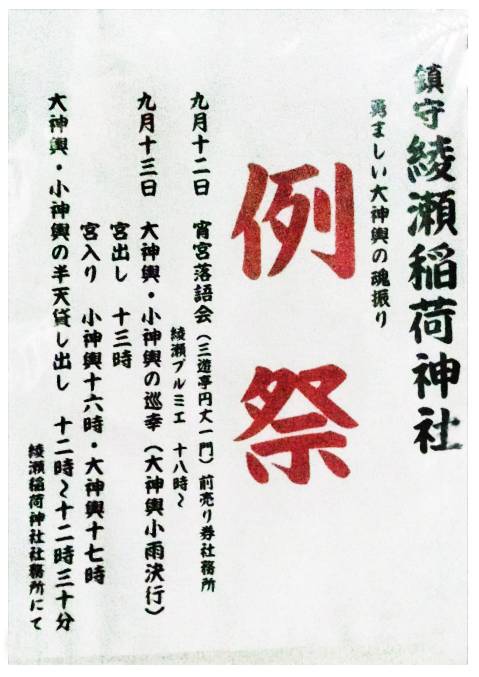 鎮守綾瀬稲荷神社
勇ましい大神輿の魂振り
例祭
九月十二日 宵宮落語会(三遊亭円丈一門)前売り券社務所
綾瀬プルミエ 十八時~
九月十三日 大神輿・小神輿の巡幸(大神輿小雨決行)
宮出し 十三時
宮入り 小神輿十六時・大神輿十七時
大神輿・小神輿の半天貸し出し 十二時~十二時三十分
綾瀬稲荷神社社務所にて